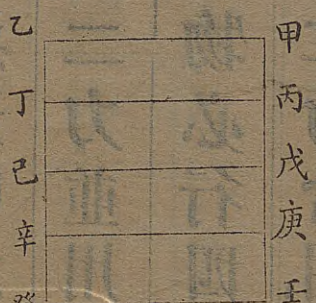 甲丙戊庚壬
乙丁己辛癸